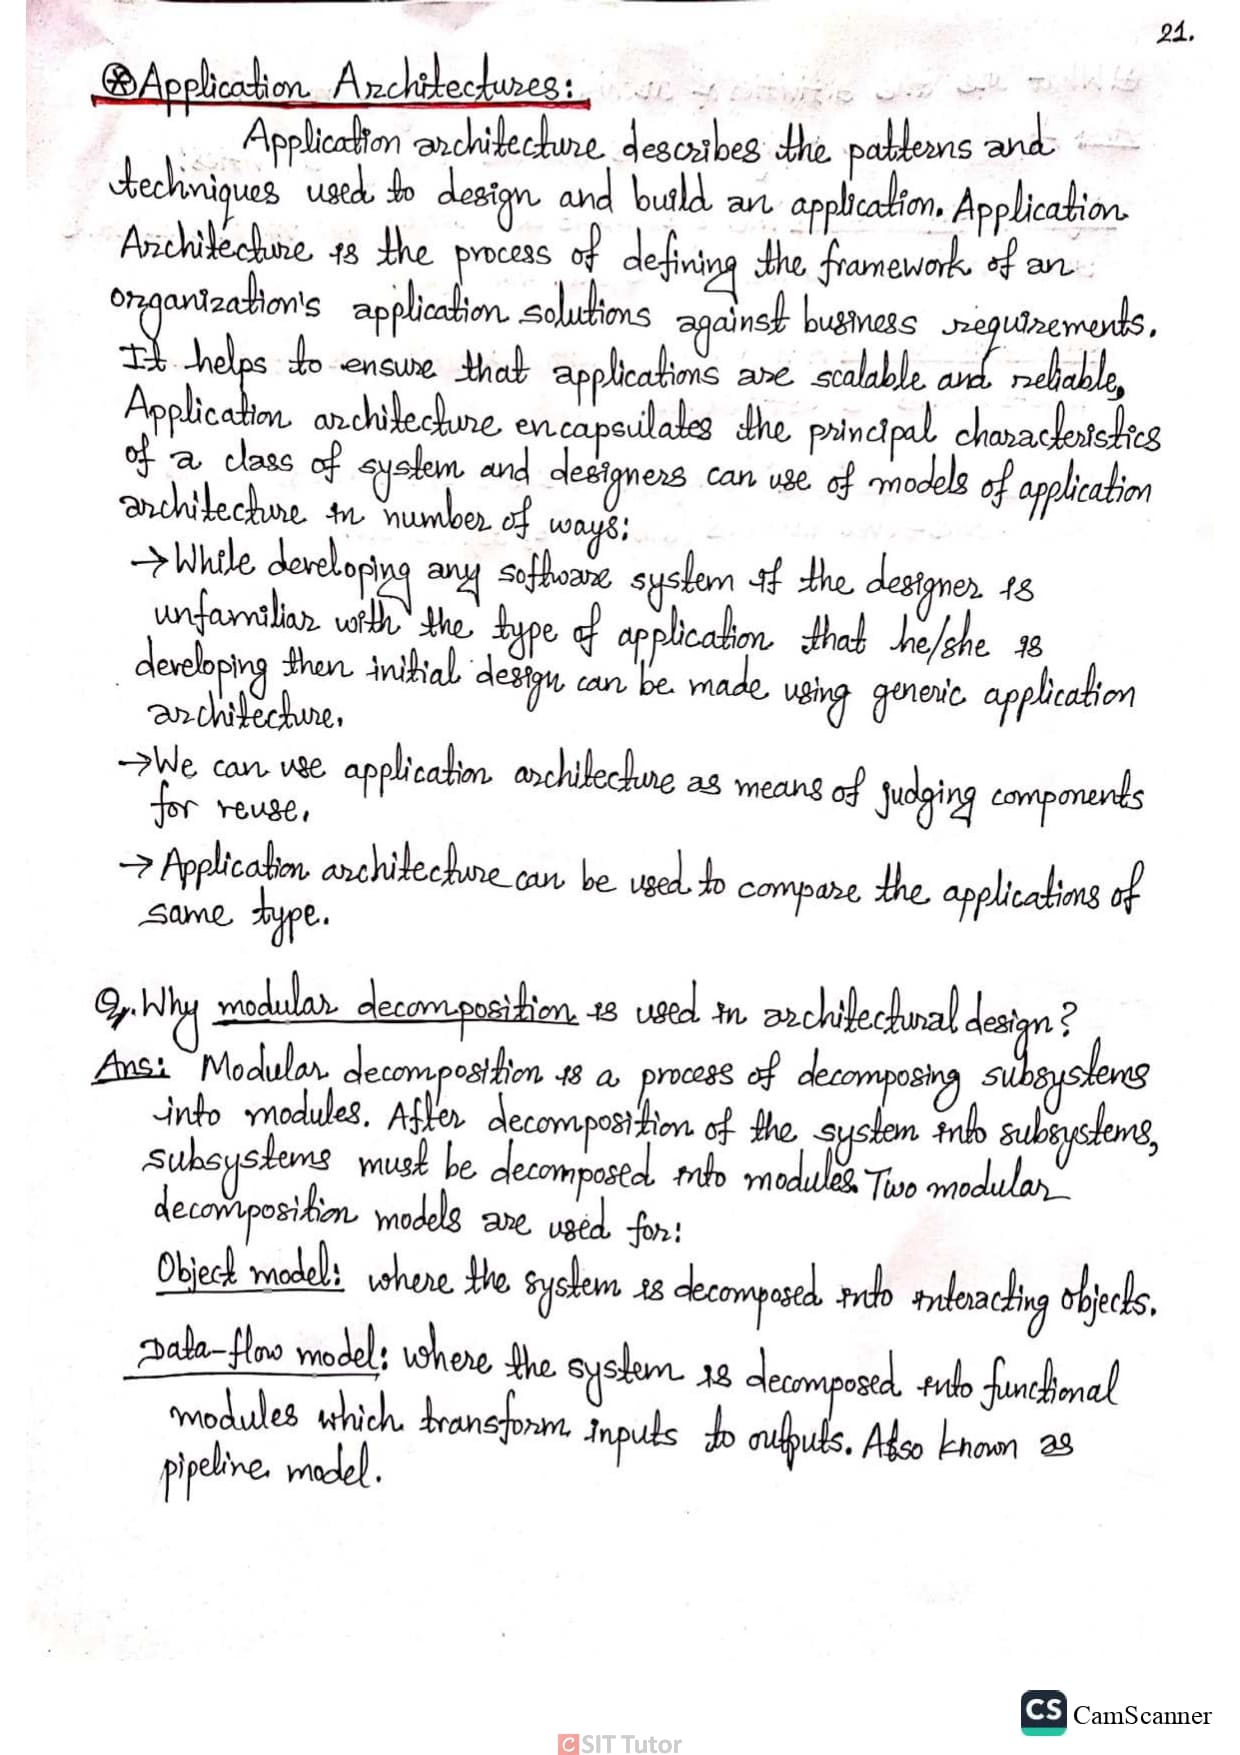 21.
⊛ Application Architectures:
Application architecture describes the patterns and
techniques used to design and build an application. Application
Architecture is the process of defining the framework of an
organization's application solutions against business requirements.
It helps to ensure that applications are scalable and reliable,
Application architecture encapsulates the principal characteristics
of a class of system and designers can use of models of application
architecture in number of ways:
→ While developing any software system if the designer is
unfamiliar with the type of application that he/she is
developing then initial design can be made using generic application
architecture.
→ We can use application architecture as means of judging components
for reuse.
→ Application architecture can be used to compare the applications of
same type.
Q. Why modular decomposition is used in architectural design?
Ans: Modular decomposition is a process of decomposing subsystems
into modules. After decomposition of the system into subsystems,
subsystems must be decomposed into modules. Two modular
decomposition models are used for:
Object model: where the system is decomposed into interacting objects.
Data-flow model: where the system is decomposed into functional
modules which transform inputs to outputs. Also known as
pipeline model.
CS CamScanner
CSIT Tutor